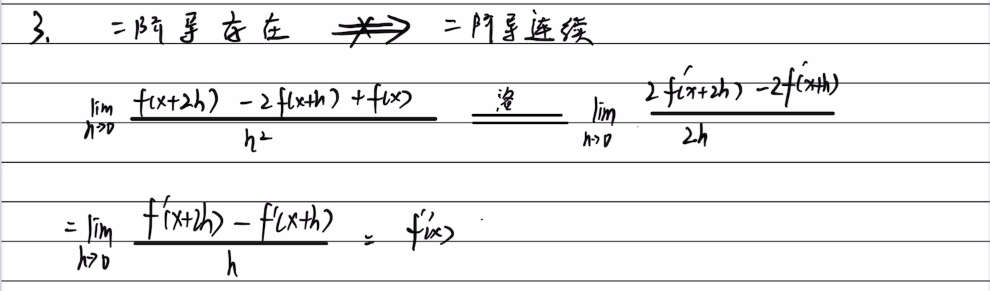 3. 二阶导存在 ⇏ 二阶导连续
lim h→0 (f(x+2h) - 2f(x+h) + f(x)) / h² = lim h→0 (2f'(x+2h) - 2f'(x+h)) / 2h
= lim h→0 (f'(x+2h) - f'(x+h)) / h = f''(x)